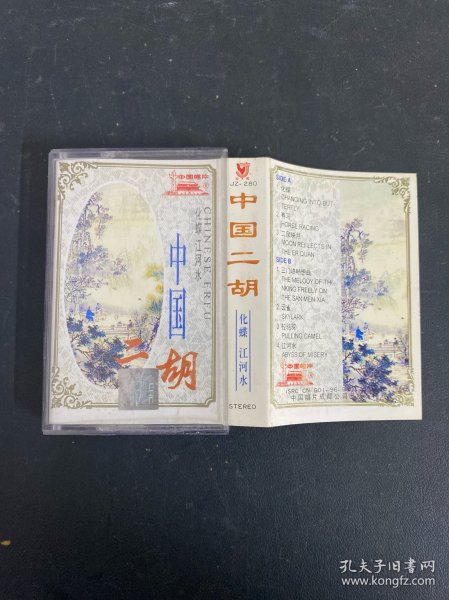 中国唱片
化蝶 江河水
CHINESE ERHU
中国
二胡
JZ-280
中国二胡
化蝶 江河水
STEREO
SIDE A
1. 化蝶
CHANGING INTO BUT-
TERFLY
2. 赛马
HORSE RACING
3. 二泉映月
MOON REFLECTS IN
THE ER QUAN
SIDE B
1. 三门峡畅想曲
THE MELODY OF THI-
NKING FREELY ON
THE SAN MEN XIA
2. 云雀
SKYLARK
3. 拉骆驼
PULLING CAMEL
4. 江河水
ABYSS OF MISERY
中国唱片
ISRC CN-G01-96-
中国唱片成都公司
孔夫子旧书网
www.kongfz.com